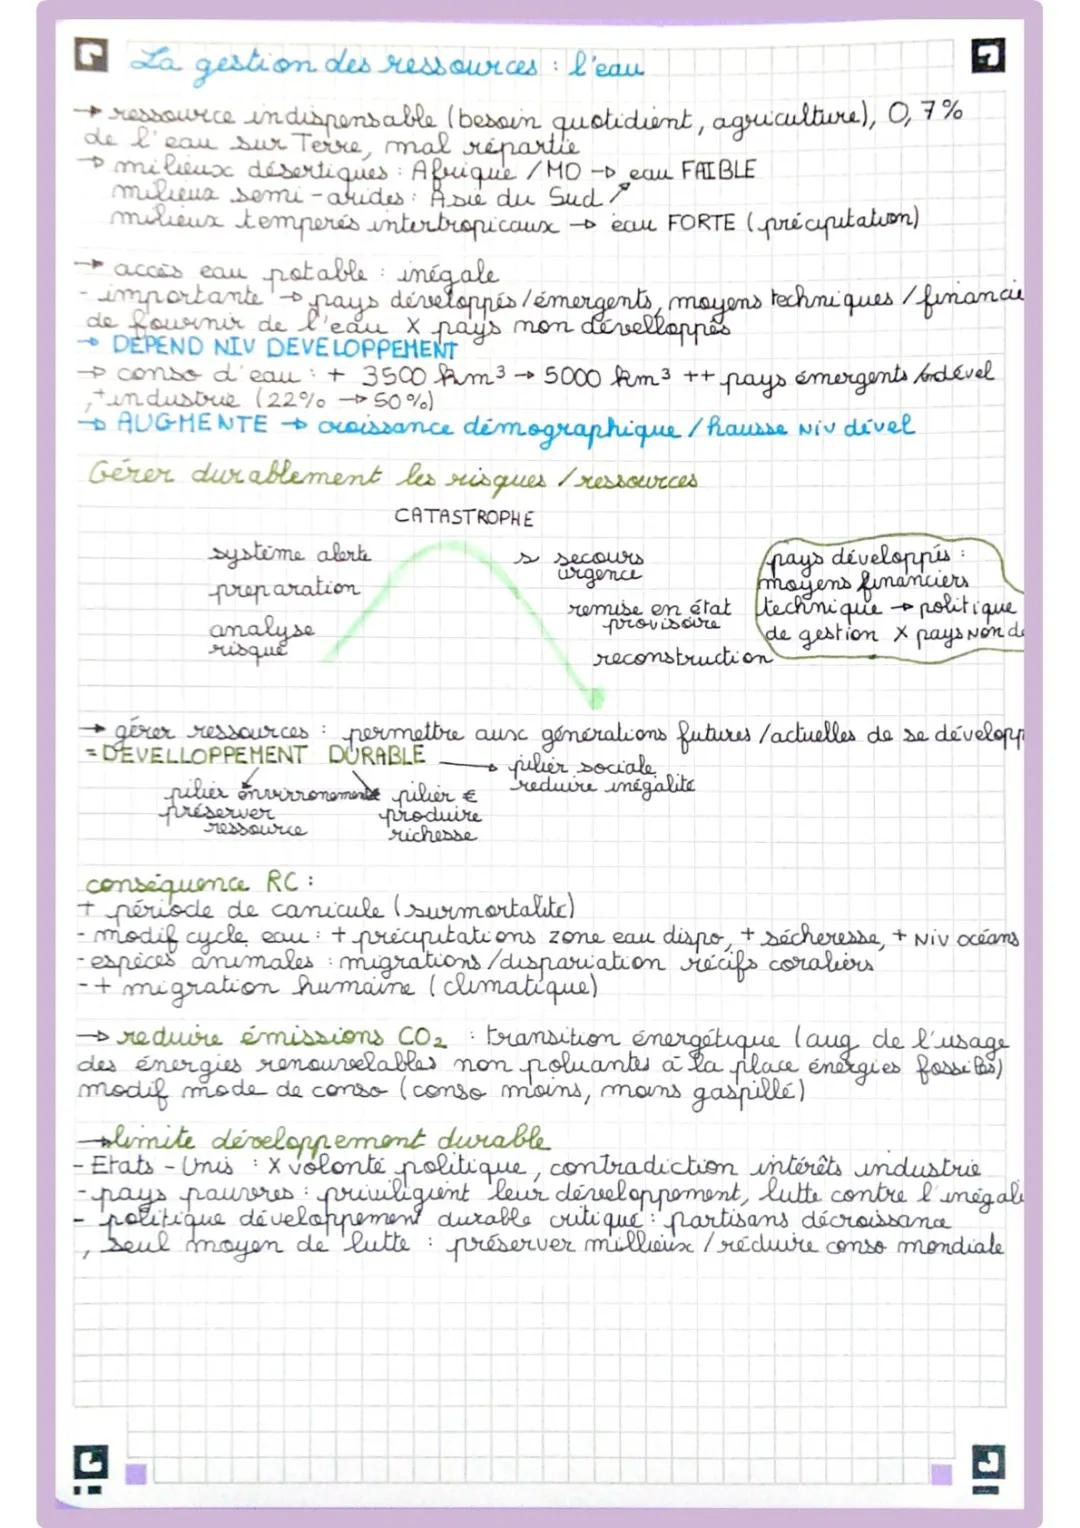 La gestion des ressources : l'eau
→ ressource indispensable (besoin quotidient, agriculture), 0,7%
de l'eau sur Terre, mal répartie
→ milieux désertiques : Afrique / MO → eau FAIBLE
milieux semi-arides : Asie du Sud ↗
milieux temperés intertropicaux → eau FORTE (précipitation)
→ accès eau potable : inégale
- importante → pays développés/émergents, moyens techniques / financie
de fournir de l'eau X pays non dévelloppés
→ DEPEND NIV DEVELOPPEMENT
→ conso d'eau : + 3500 km³ → 5000 km³ ++ pays émergents dével
, + industrie (22% → 50%)
→ AUGMENTE → croissance démographique / hausse NIV dével
Gérer durablement les risques / ressources
CATASTROPHE
système alerte
preparation
analyse
risque
secours
urgence
remise en état
provisoire
reconstruction
pays développés :
moyens financiers
technique → politique
de gestion X pays NON de
→ gérer ressources : permettre aux générations futures / actuelles de se développ
= DEVELLOPPEMENT DURABLE → pilier sociale
reduire inégalité
pilier environnement
préserver
ressource
pilier €
produire
richesse
conséquence RC :
+ période de canicule (surmortalité)
- modif cycle eau : + précipitations zone eau dispo, + sécheresse, + NIV océans
- espèces animales : migrations / dispariation récifs coraliers
- + migration humaine (climatique)
→ reduire émissions CO₂ : transition énergétique (aug de l'usage
des énergies renouvelables non poluantes à la place énergies fossiles)
modif mode de conso (conso moins, moins gaspillé)
→ limite développement durable
- Etats-Unis : X volonté politique, contradiction intérêts industrie
- pays pauvres : priviligient leur développement, lutte contre l'inégali
- politique développement durable critiqué : partisans décroissance
, seul moyen de lutte : préserver millieux / réduire conso mondiale